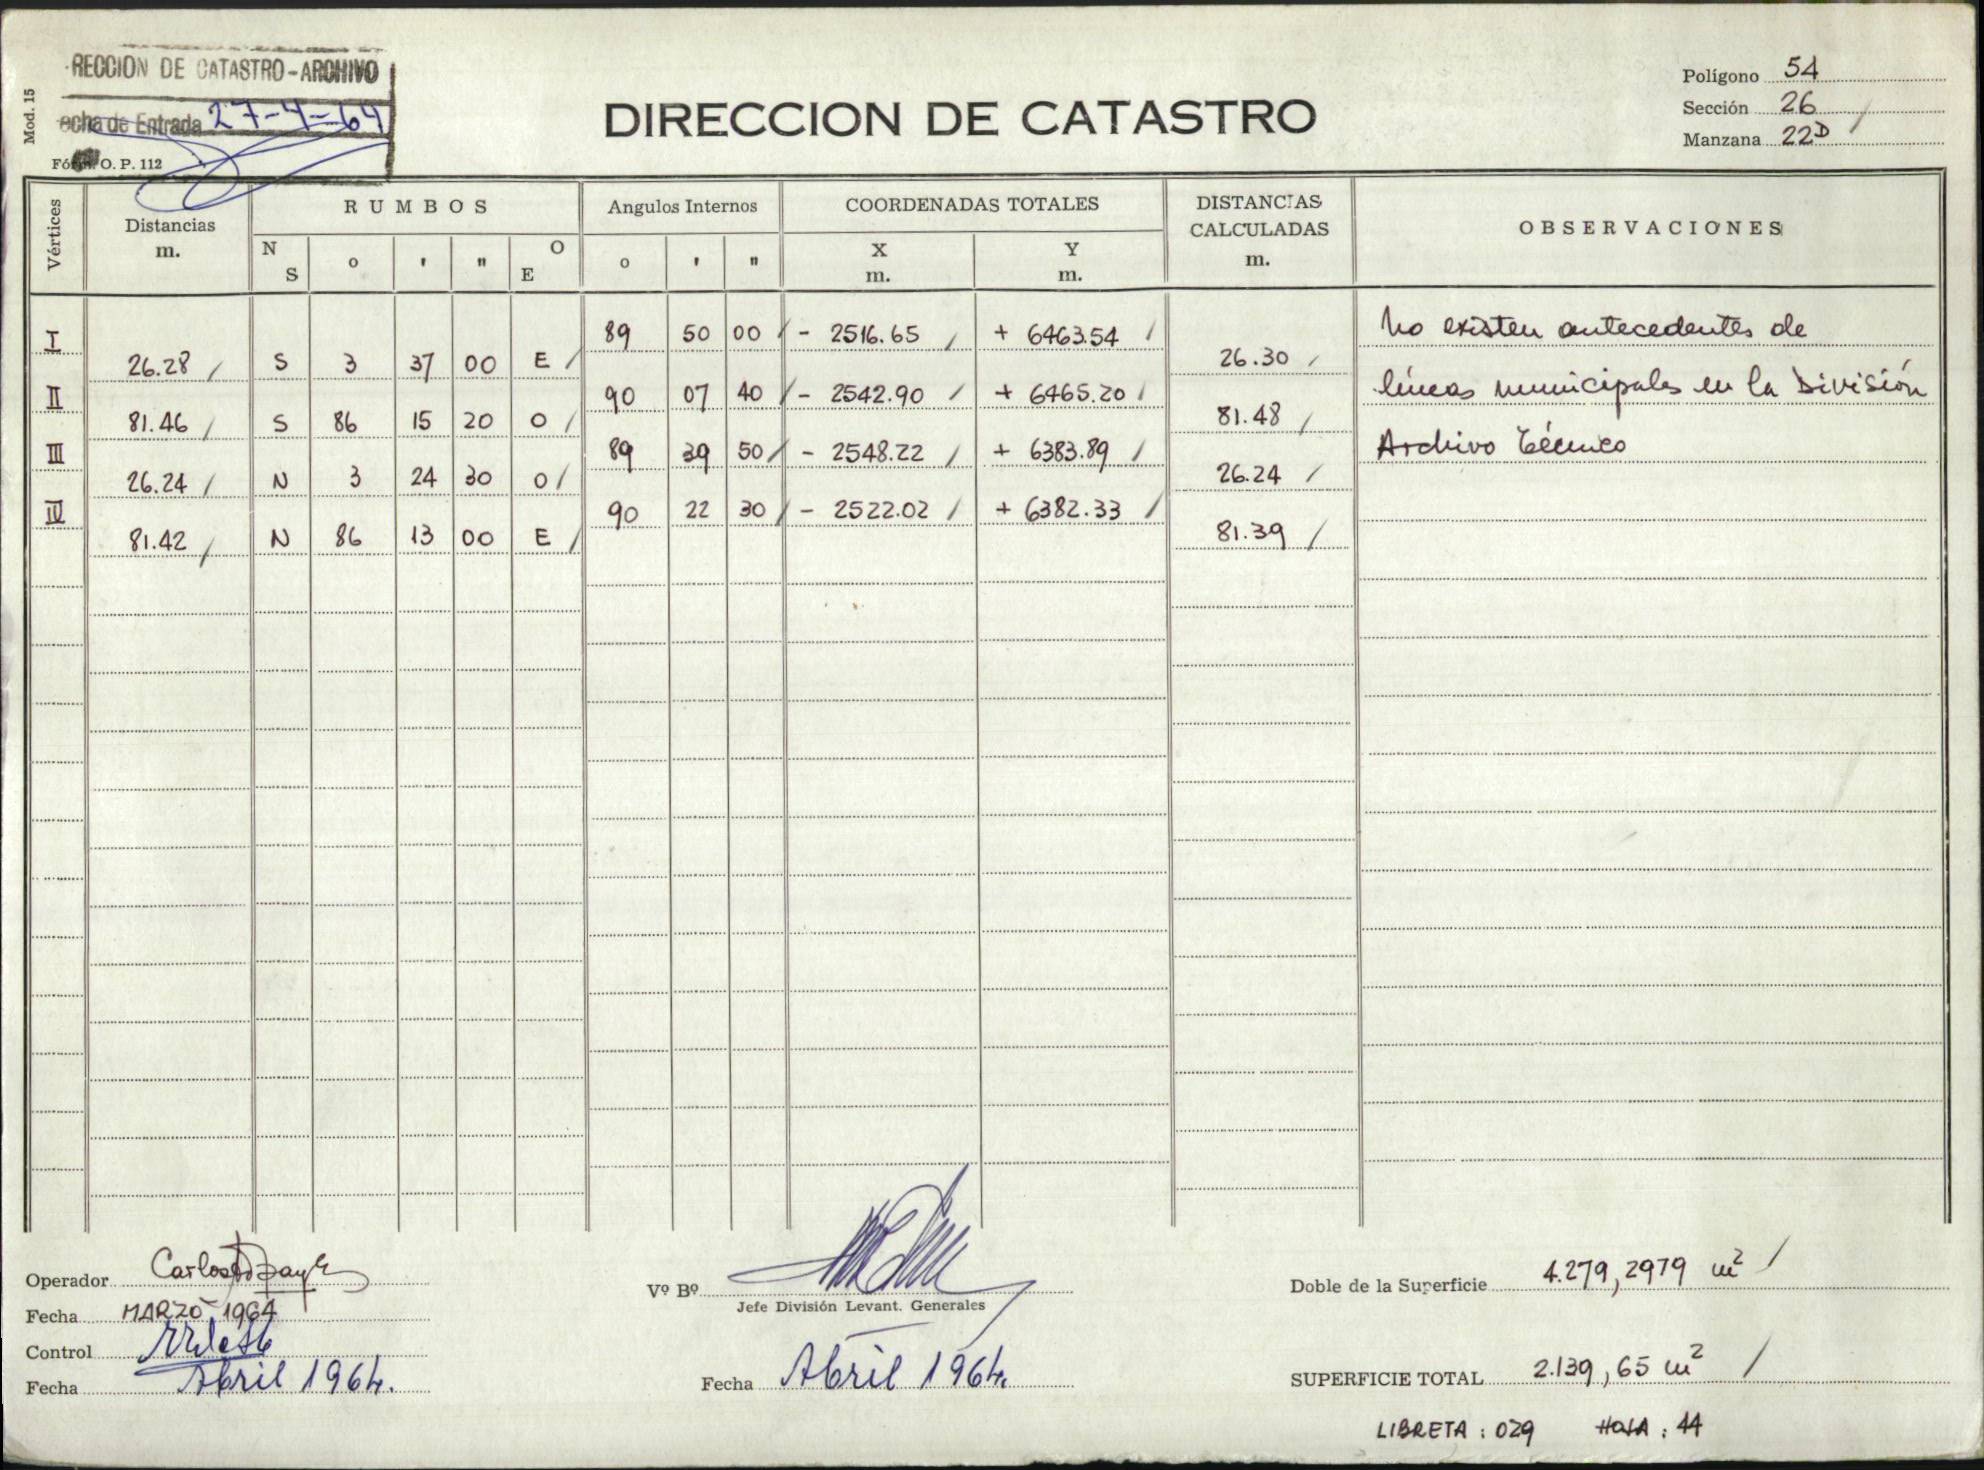 RECCION DE CATASTRO - ARCHIVO
echa de Entrada 27-4-64
Mod. 15
O. P. 112
DIRECCION DE CATASTRO
Polígono 54
Sección 26
Manzana 22D
Vértices
Distancias
m.
RUMBOS
N
S
o
'
"
O
E
Angulos Internos
o
'
"
COORDENADAS TOTALES
X
m.
Y
m.
DISTANCIAS
CALCULADAS
m.
OBSERVACIONES
I 89 50 00 - 2516.65 + 6463.54 No existen antecedentes de
26.28 S 3 37 00 E 26.30
II 90 07 40 - 2542.90 + 6465.20 líneas municipales en la División
81.46 S 86 15 20 O 81.48
III 89 39 50 - 2548.22 + 6383.89 Archivo Técnico
26.24 N 3 24 30 O 26.24
IV 90 22 30 - 2522.02 + 6382.33
81.42 N 86 13 00 E 81.39
Operador Carlos
Fecha MARZO 1964
Control
Fecha Abril 1964.
Vº Bº
Jefe División Levant. Generales
Fecha Abril 1964.
Doble de la Superficie 4.279,2979 m²
SUPERFICIE TOTAL 2.139,65 m²
LIBRETA : 029 HOJA : 44